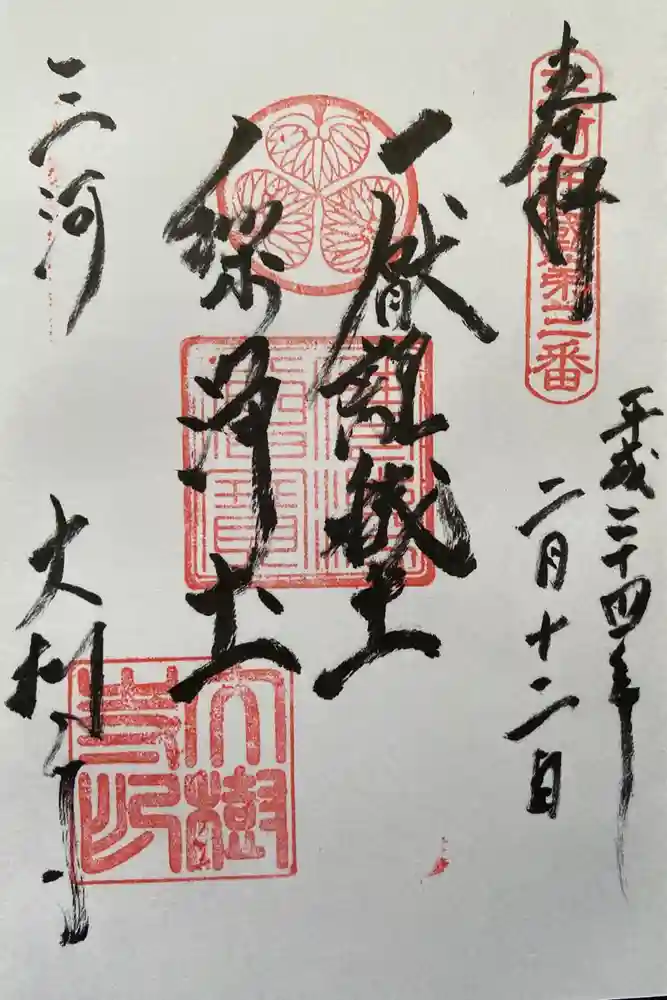 奉拝
平成二十四年
二月十二日
厭離穢土
欣求浄土
三河
大樹寺
大樹
寺印